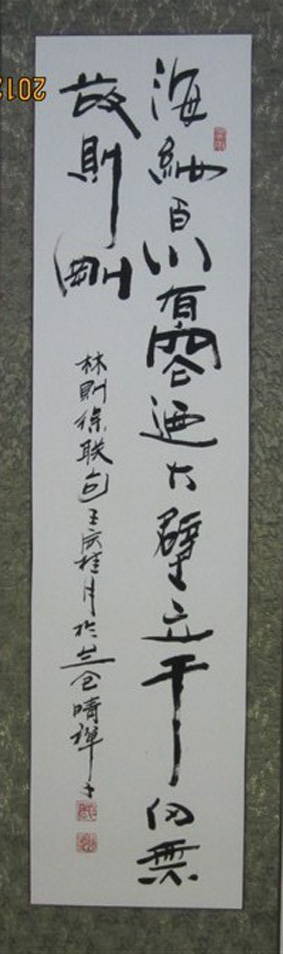 海納百川有容迺大壁立千仞無
欲則剛
林則徐联句壬辰桂月於兰仓晴